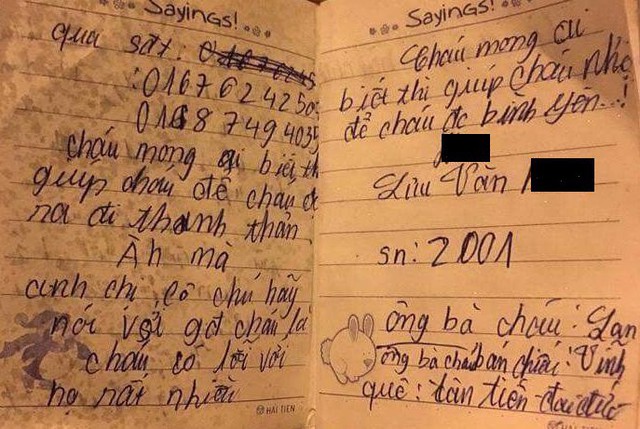 Sayings!
qua sắt:
:016762425
0168 7494035
cháu mong ai biết th
giúp cháu để cháu đc
ra đi thanh thản
Àh mà
anh chị, cô chú hãy
nói với gđ cháu là
cháu có lỗi với
họ rất nhiều
HẢI TIẾN
Sayings!
Cháu mong ai
biết thì giúp cháu nhé
để cháu đc bình yên...!
Lưu Văn
sn: 2001
ông bà cháu: Lan
ông bà cháu bán chiếu: Vĩnh
quê: tân tiến - đại đức
HẢI TIẾN